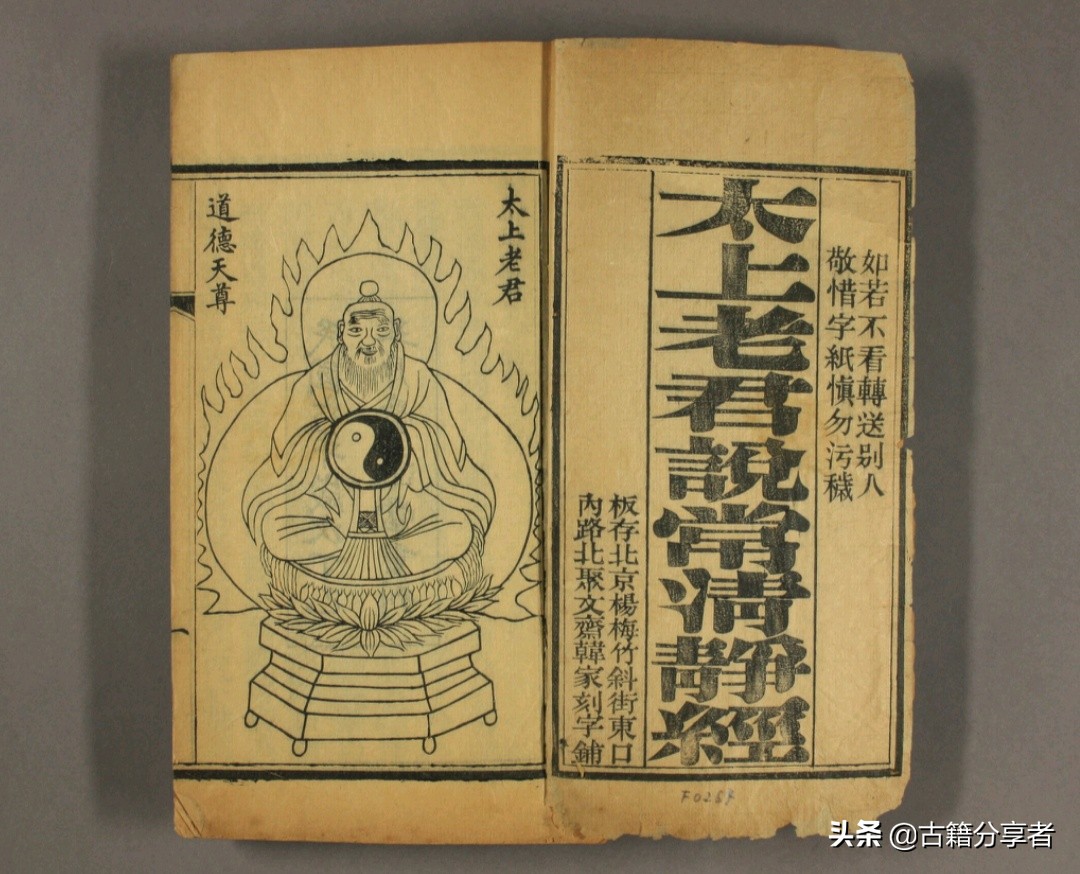 如若不看轉送别人
敬惜字紙慎勿污穢
太上老君說常清靜經
板存北京楊梅竹斜街東口
內路北聚文齋韓家刻字鋪
太上老君
道德天尊
一
F0257
头条 @古籍分享者